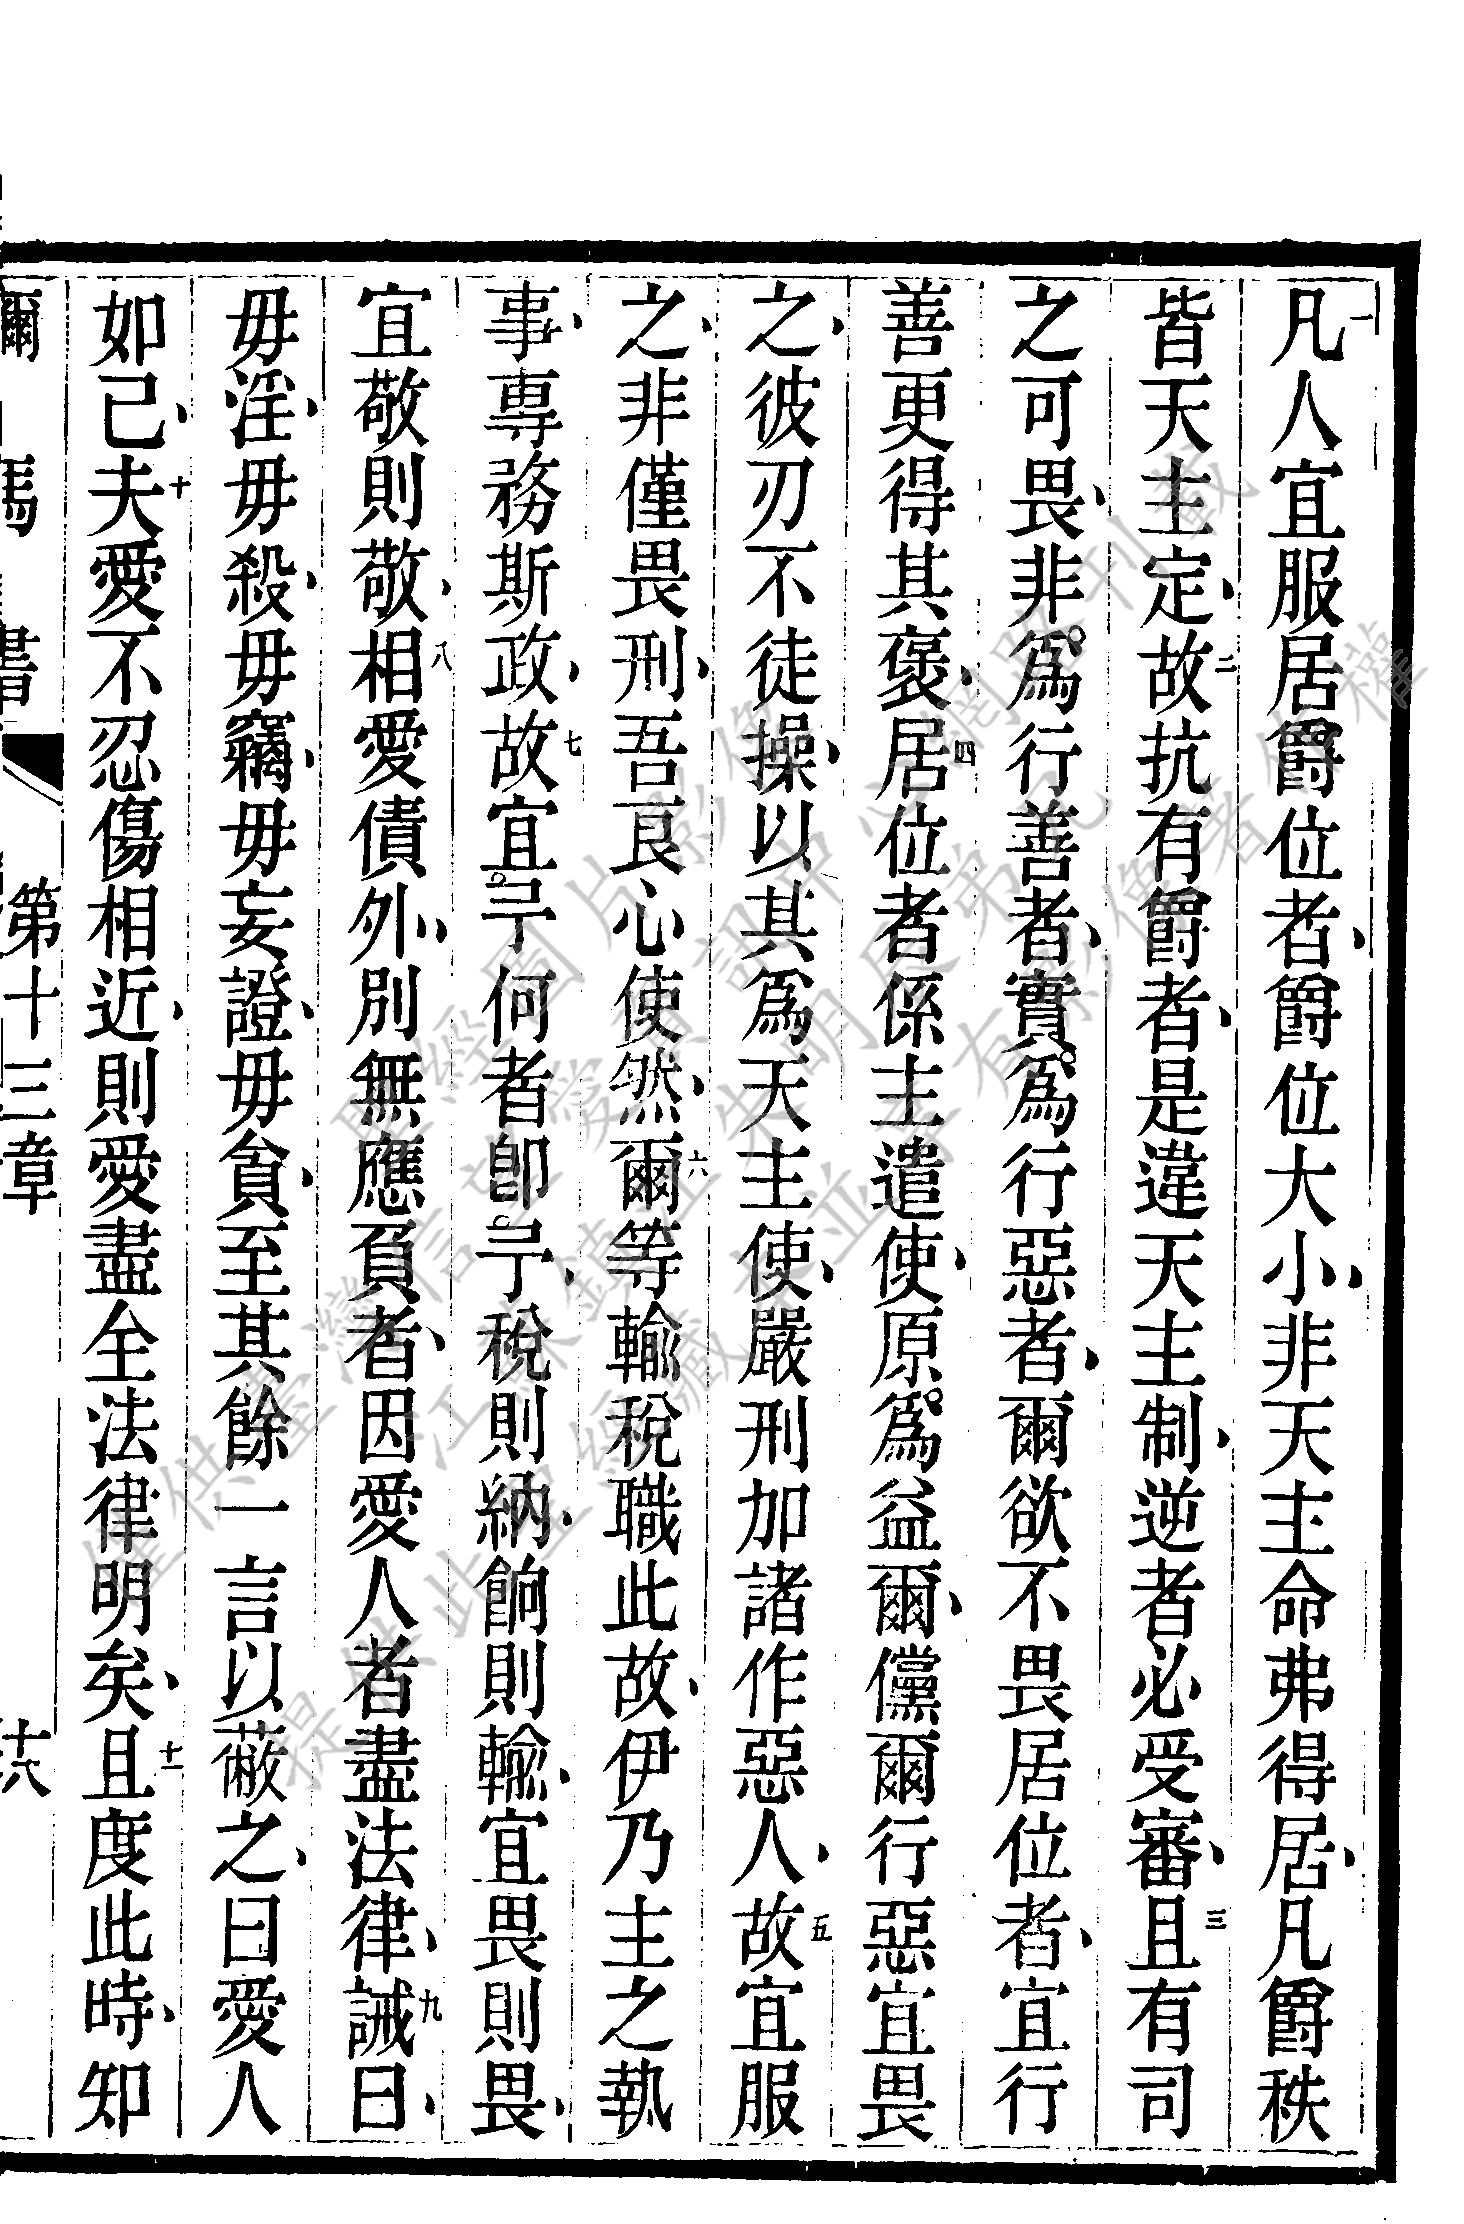 一凡人宜服居爵位者、爵位大小、非天主命弗得居、凡爵秩
皆天主定、二故抗有爵者、是違天主制、逆者必受審、三且有司
之可畏、非爲行善者、實爲行惡者、爾欲不畏居位者、宜行
善更得其褒、四居位者係主遣使、原爲益爾、爾儻爾行惡宜畏
之、彼刃不徒操、以其爲天主使、嚴刑加諸作惡人、五故宜服
之、非僅畏刑、吾良心使然、六爾等輸稅職此故、伊乃主之執
事、專務斯政、七故宜予何者卽予、稅則納、餉則輸、宜畏則畏、
宜敬則敬、八相愛債外、別無應負者、因愛人者盡法律、九誡曰、
毋淫、毋殺、毋竊、毋妄證、毋貪、至其餘一言以蔽之、曰愛人
如己、十夫愛不忍傷相近、則愛盡全法律明矣、十一且度此時、知
爾 馬 書 第十三章 十六